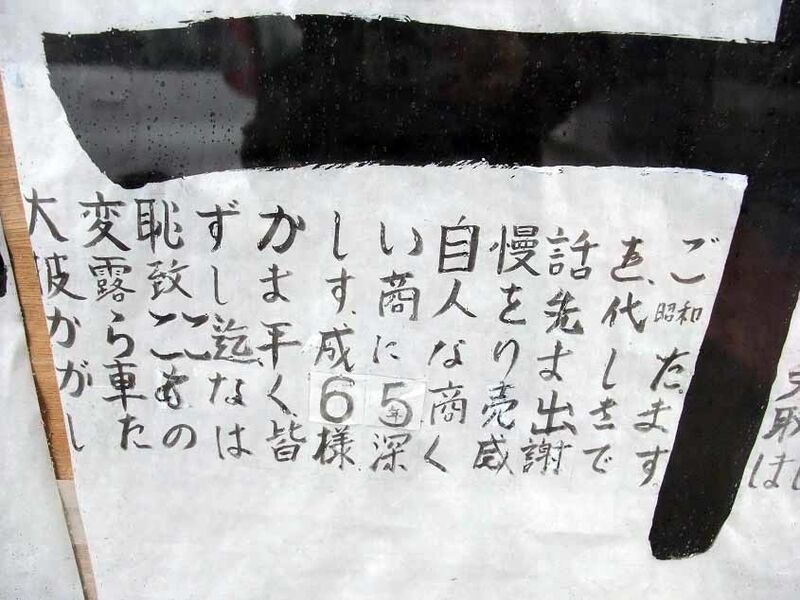 大変恥ずかしい自慢話をご
披露致します。商人を先代昭和
からここ迄平成になりました
が車もなく65年商売出来ま
したのは皆様深く感謝です
取
は